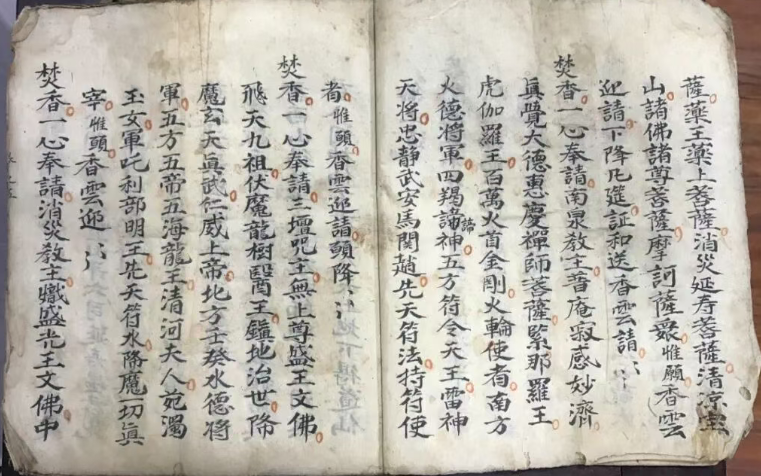 薩藥王藥上菩薩消災延寿菩薩清凉
山諸佛諸尊菩薩摩訶薩衆惟願香雲
迎請下降此筵証和送香雲請
焚香一心奉請南泉教主普庵寂感妙濟
真覺大德惠慶禪師菩薩緊那羅王
虎伽羅王百萬火首金剛火輪使者南方
火德將軍四羯諦神五方符令天王雷神
天將忠靜武安馬関趙先天符法持符使
者惟頭香雲迎請頭降
焚香一心奉請三壇咒主無上尊盛王文佛
飛天九祖伏魔龍樹醫王鎮地治世降
魔玄天真武仁威上帝北方壬癸水德將
軍五方五帝五海龍王清河大人苑濁
玉女軍吒利部明王先天符水降魔一切真
宰惟頭香雲迎
焚香一心奉請消災教主熾盛光王文佛中